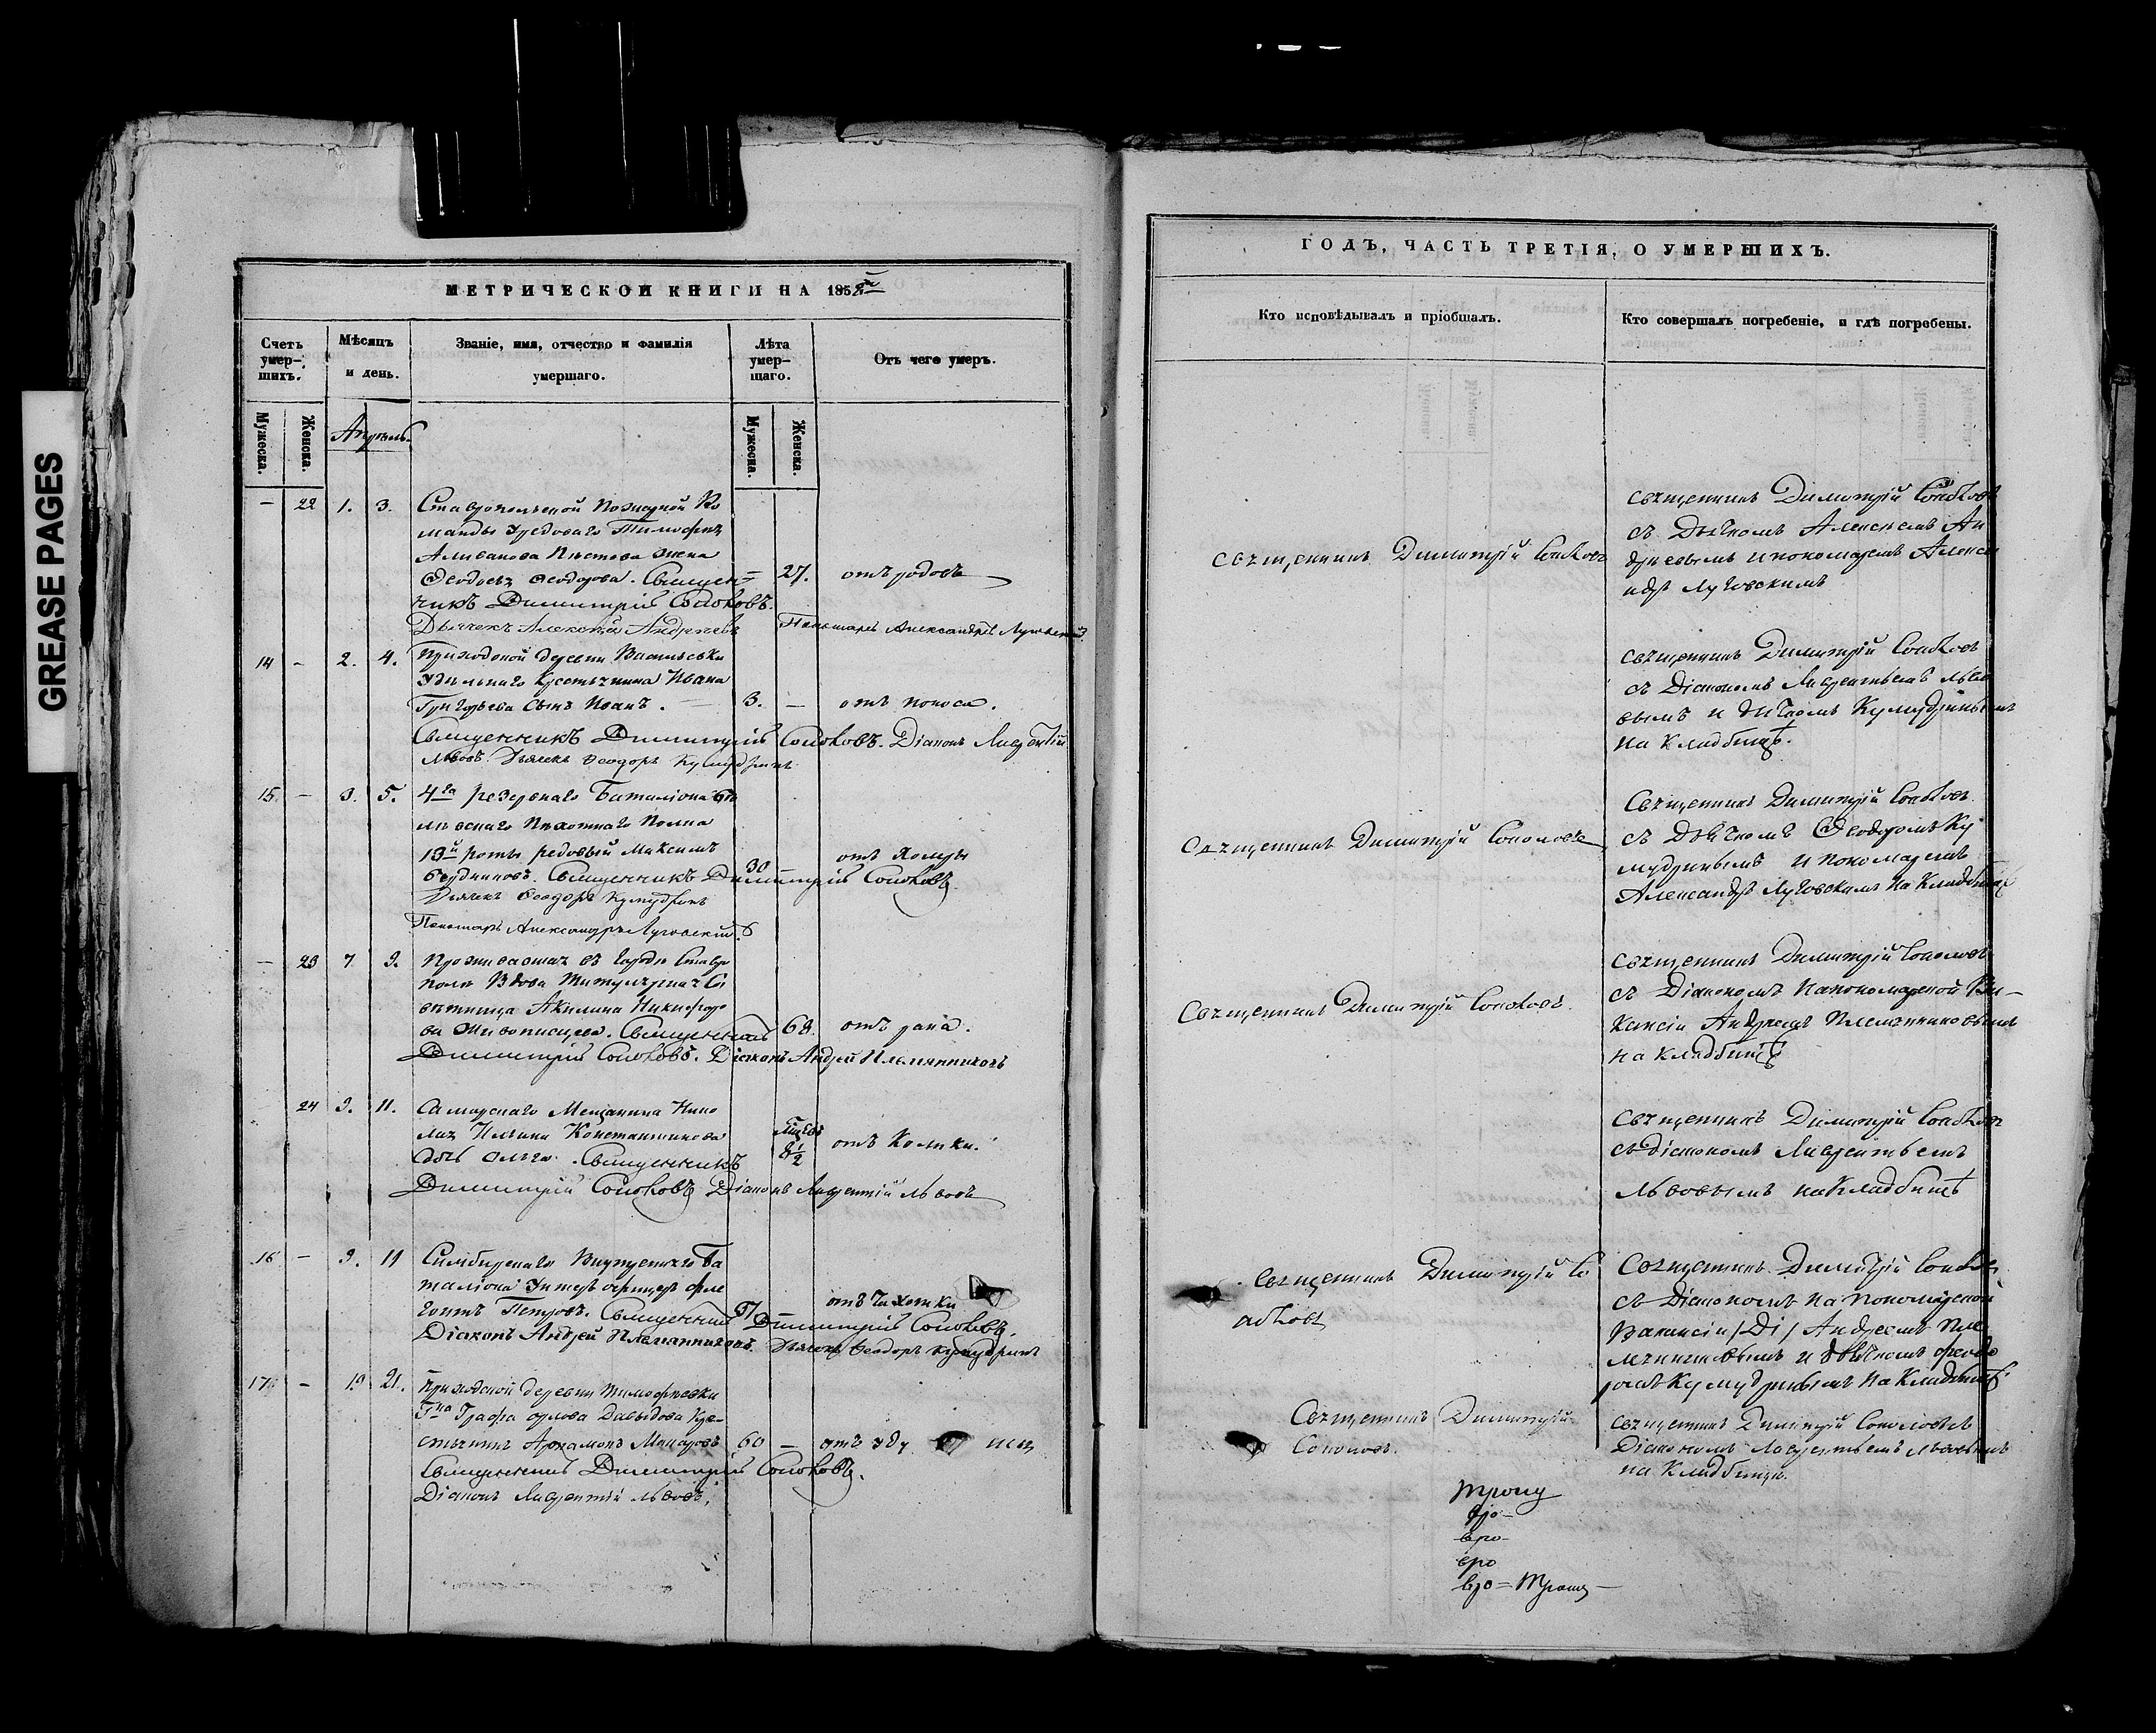 GREASE PAGES
МЕТРИЧЕСКОЙ КНИГИ НА 1852й
Счетъ умер-шихъ.
Мѣсяцъ и день.
Званіе, имя, отчество и фамилія умершаго.
Лѣта умер-шаго.
Отъ чего умеръ.
Мужеска.
Женска.
Апрѣль.
Мужеска.
Женска.
— 22 1. 3. Ставропольской Пожарной Ко
манды Рядоваго Тимофея
жена
Феодосья Феодорова. Священ- — 27. отъ родовъ
никъ Димитрій Соколовъ.
Дьячекъ Алексѣй Андреевъ Пономарь Александръ Луговскій
14 — 2. 4. Приходской деревни Васильевки
Удѣльнаго Крестьянина Ивана
Григорьева Сынъ Иванъ. 3. — отъ поноса.
Священникъ Димитрій Соколовъ. Діаконъ Лаврентій
Львовъ. Дьячекъ Феодоръ Кумудринъ
15 — 3. 5. 4го резервнаго Баталіона
Пѣхотнаго Полка
13й роты рядовый Максимъ
30 — отъ
Священникъ Димитрій Соколовъ
Дьячекъ Феодоръ Кумудринъ
Пономарь Александръ Луговскій
— 23 7. 9. Проживавшая въ городѣ Ставро
полѣ Вдова Титулярная Со
вѣтница Акилина Никифоро
ва Живописцева. Священникъ 68. отъ рака.
Димитрій Соколовъ. Діаконъ Андрей Племянниковъ
24 9. 11. Самарскаго Мещанина Нико
лая Ильина Константинова
дочь Ольга. Священникъ 8½ отъ Колики.
Димитрій Соколовъ Діаконъ Лаврентій Львовъ
16 — 9. 11 Симбирскаго Внутренняго Ба
таліона Унтеръ офицеръ Фле
гонтъ Петровъ. Священникъ — отъ Чахотки
Димитрій Соколовъ.
Діаконъ Андрей Племянниковъ. Дьячекъ Феодоръ Кумудринъ
17 — 19 21. Приходской деревни Тимофеевки
Гна Графа Орлова Давыдова Кре-
стьянинъ Артамонъ Макаровъ 60 — отъ
Священникъ Димитрій Соколовъ.
Діаконъ Лаврентій Львовъ.
ГОДЪ, ЧАСТЬ ТРЕТІЯ, О УМЕРШИХЪ.
Кто исповѣдывалъ и пріобщалъ.
Кто совершалъ погребеніе, и гдѣ погребены.
Священникъ Димитрій Соколовъ
Священникъ Димитрій Соколовъ
съ Дьячкомъ Алексѣемъ Ан
дреевымъ и пономаремъ Алекса
ндр Луговскимъ
Священникъ Димитрій Соколовъ
съ Діакономъ Лаврентьемъ Льво
вымъ и дьячкомъ Кумудринымъ
на кладбищѣ.
Священникъ Димитрій Соколовъ
Священникъ Димитрій Соколовъ
съ Дьячкомъ Феодоромъ Ку
мудринымъ и пономаремъ
Александр Луговскимъ на Кладбищѣ
Священникъ Димитрій Соколовъ.
Священникъ Димитрій Соколовъ
съ Діакономъ на пономарской Ва-
кансіи Андреемъ Племянниковымъ
на кладбищѣ
Священникъ Димитрій Соколовъ
съ Діакономъ Лаврентьемъ
Львовымъ на Кладбищѣ
Священникъ Димитрій Со
ловъ
Священникъ Димитрій Соколовъ
съ Діакономъ на пономарской
Вакансіи /Ді/ Андреемъ Пле
мянниковымъ и дьячкомъ Феодо
ромъ Кумудринымъ на Кладбищѣ
Священникъ Димитрій
Соколовъ.
Священникъ Димитрій Соколовъ съ
Діакономъ Лаврентьемъ Львовымъ
на Кладбищѣ.